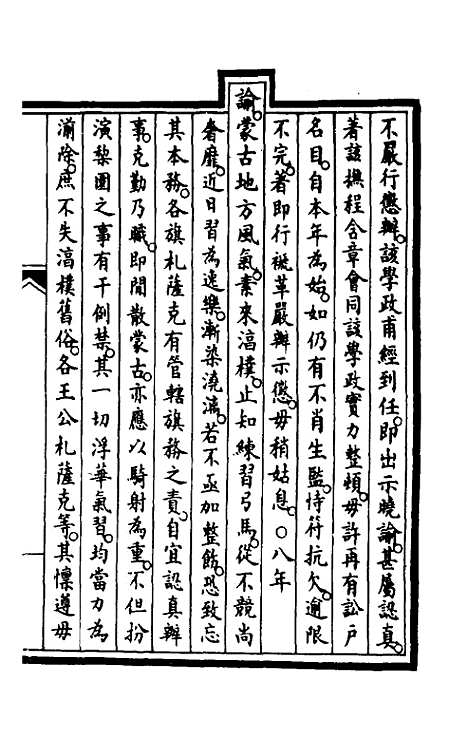 不嚴行懲辦。該學政甫經到任。即出示曉諭。甚屬認真。
著該撫程含章會同該學政實力整頓。毋許再有訟戶
名目。自本年為始。如仍有不肖生監。恃符抗欠。逾限
不完。著即行褫革嚴辦示懲。毋稍姑息。○八年
諭。蒙古地方風氣。素來湻樸。止知練習弓馬。從不競尚
奢靡。近日習為逸樂。漸染澆漓。若不亟加整飭。恐致忘
其本務。各旗札薩克有管轄旗務之責。自宜認真辦
事。克勤乃職。即閒散蒙古。亦應以騎射為重。不但扮
演棃園之事有干例禁。其一切浮華氣習。均當力為
湔除。庶不失湻樸舊俗。各王公札薩克等。其懍遵毋